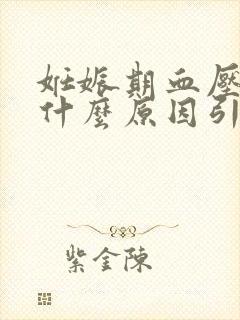 姙娠期血壓
什麼原因引
紫金陳